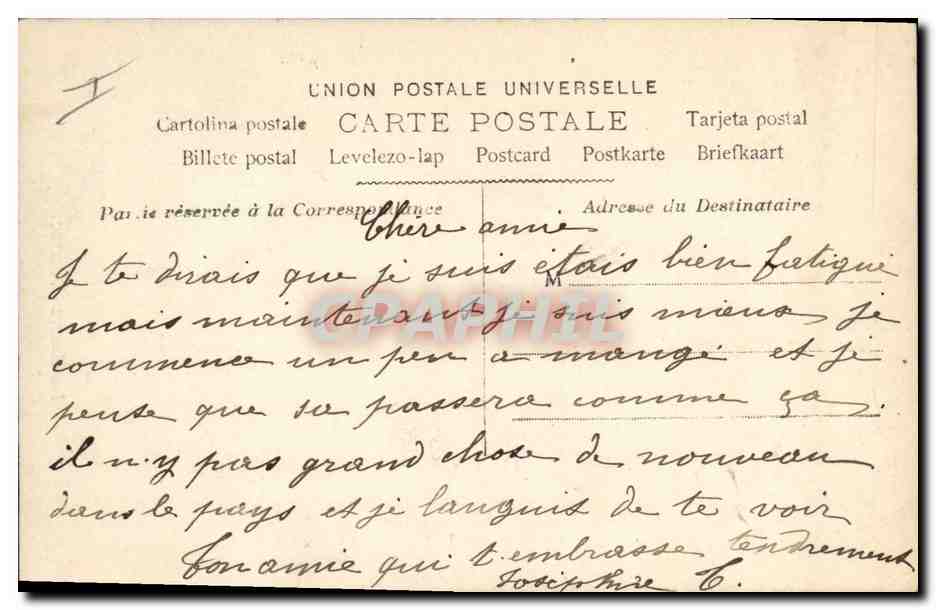 UNION POSTALE UNIVERSELLE
Cartolina postale CARTE POSTALE Tarjeta postal
Billete postal Levelezo-lap Postcard Postkarte Briefkaart
Partie réservée à la Correspondance Adresse du Destinataire
Chère amie
Je te dirais que je suis etais bien fatigue
M
mais maintenant je suis mieux je
commence un peu a mangé et je
pense que sa passera comme ça.
il n'y pas grand chose de nouveau
dans le pays et je languis de te voir
Ton amie qui t'embrasse tendrement
Josephine C.
GRAPHIL